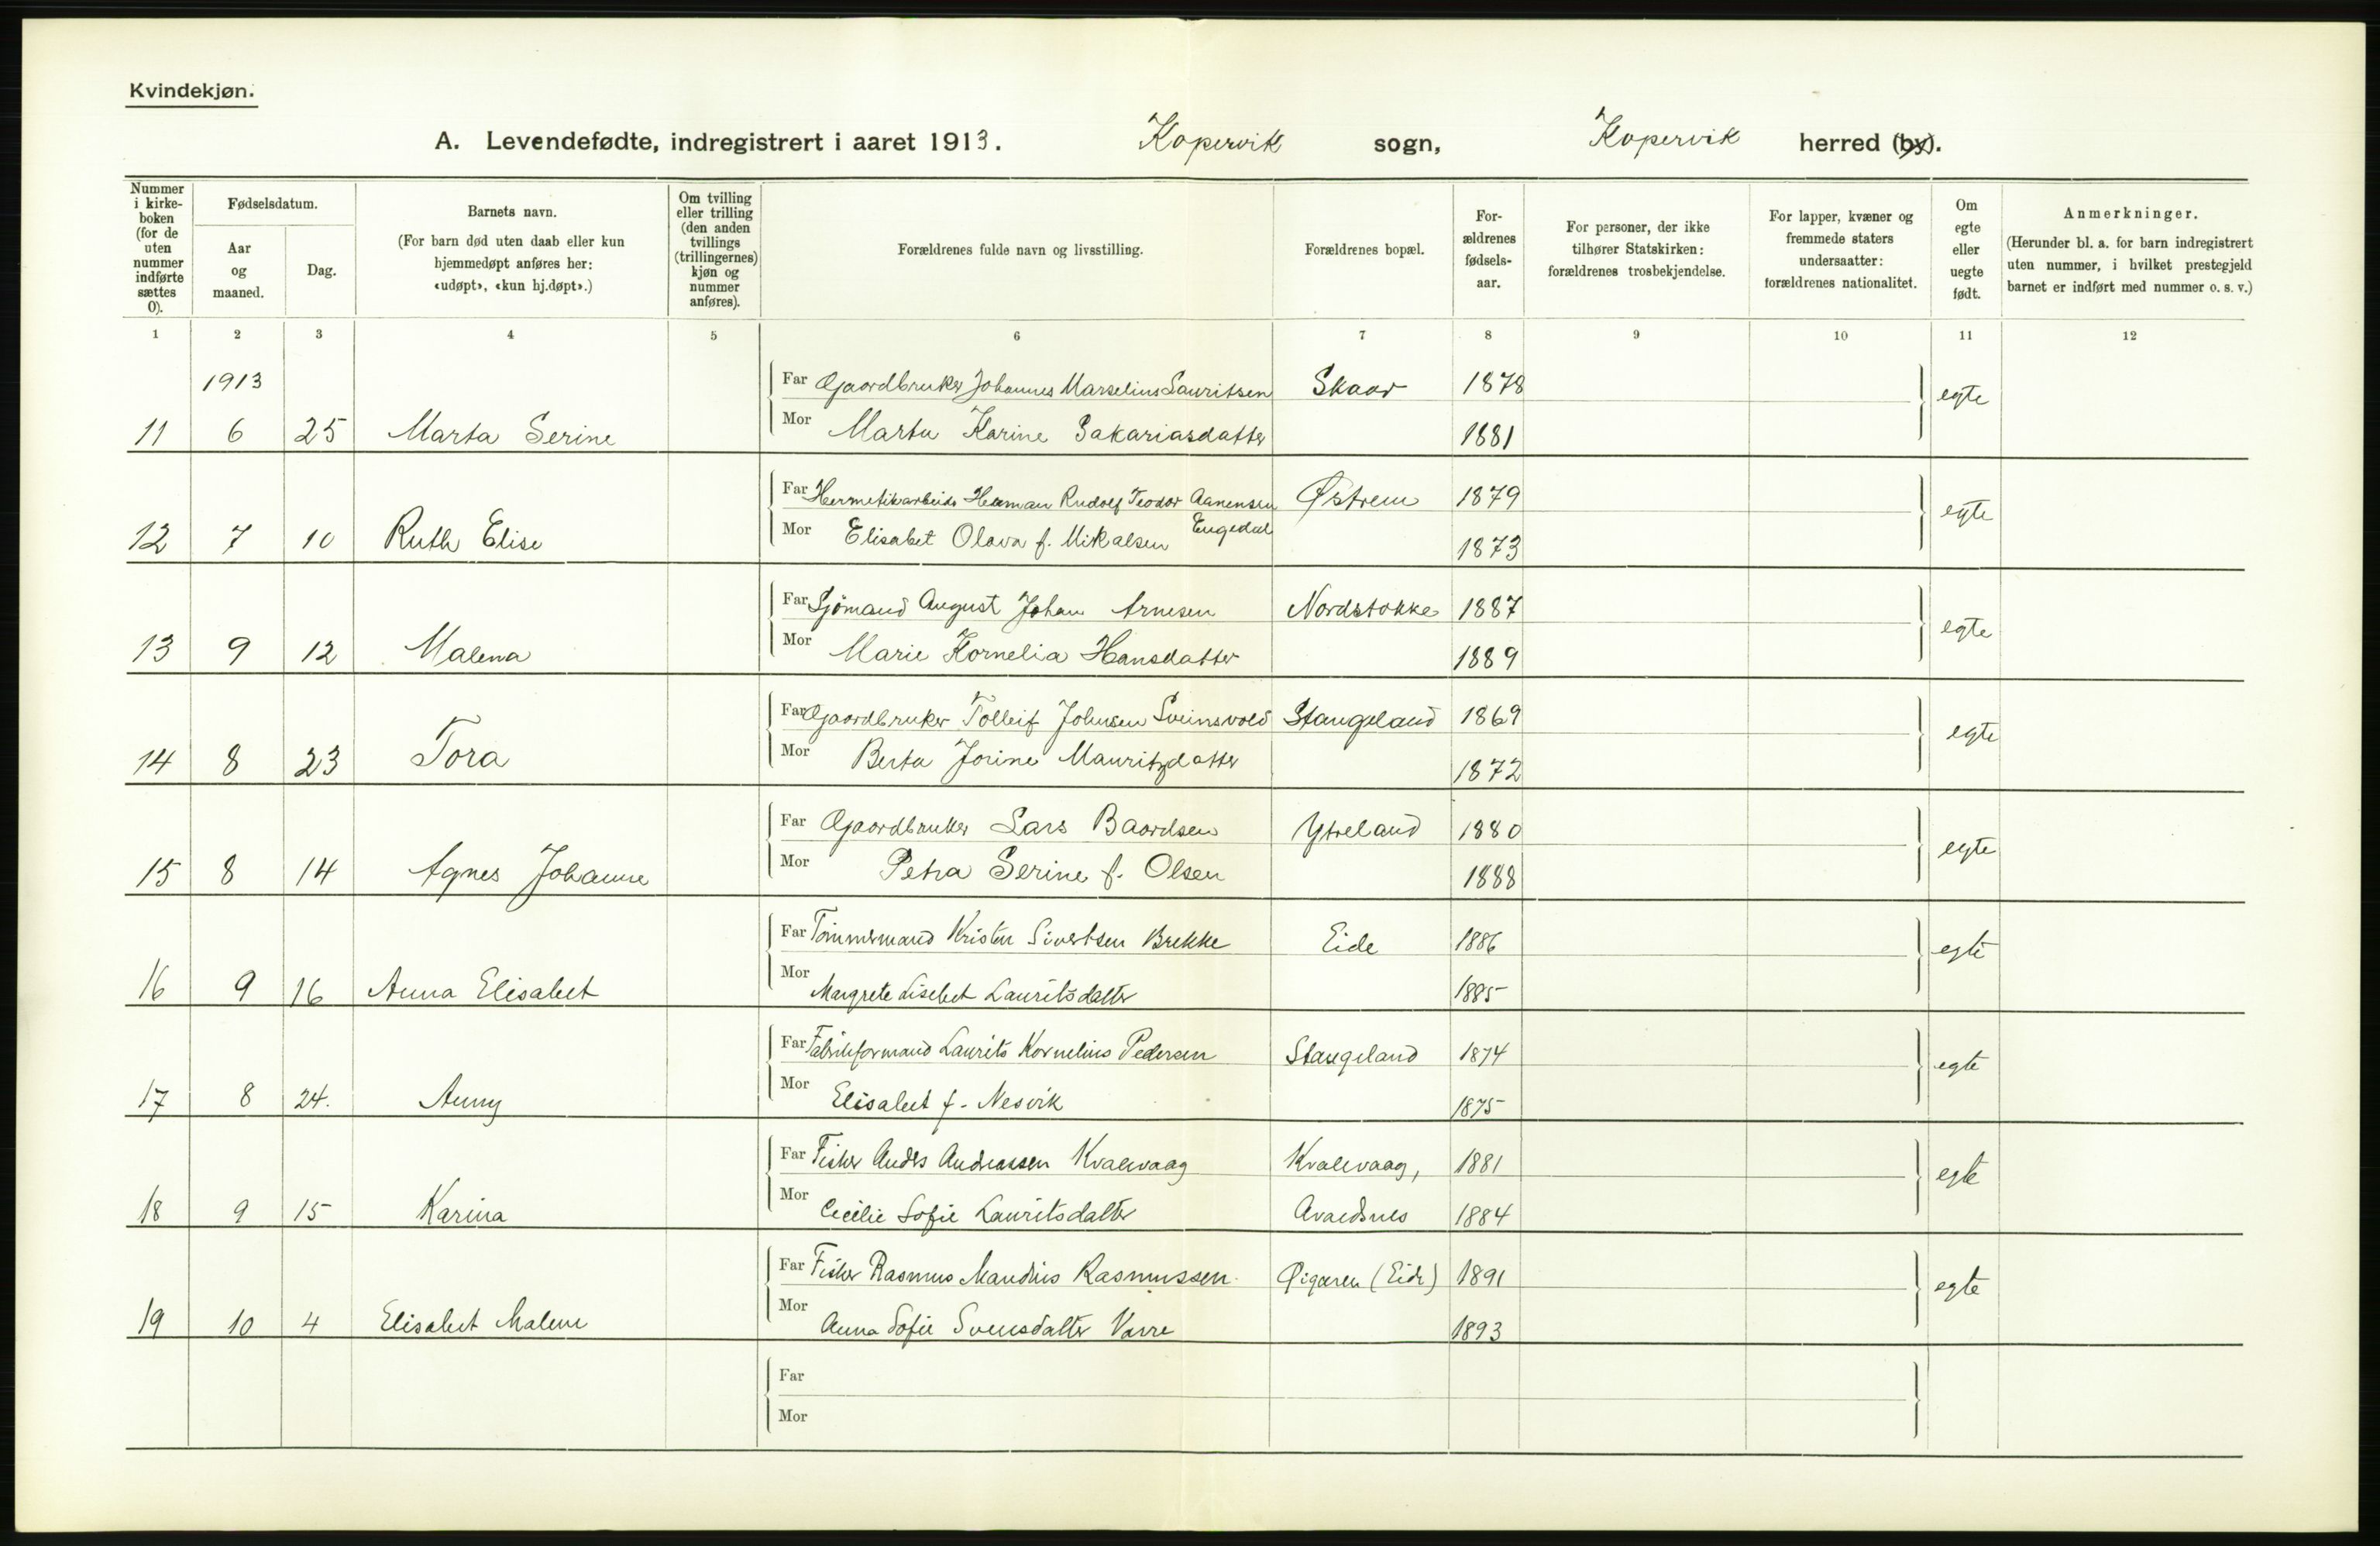 Kvindekjøn.
A. Levendefødte, indregistrert i aaret 1913. Kopervik sogn, Kopervik herred (by).
Nummer i kirke-boken (for de uten nummer indførte sættes 0).
Fødselsdatum.
Aar og maaned.
Dag.
Barnets navn.
(For barn død uten daab eller kun hjemmedøpt anføres her: «udøpt», «kun hj.døpt».)
Om tvilling eller trilling (den anden tvillings (trillingernes) kjøn og nummer anføres).
Forældrenes fulde navn og livsstilling.
Forældrenes bopæl.
For-ældrenes fødsels-aar.
For personer, der ikke tilhører Statskirken: forældrenes trosbekjendelse.
For lapper, kvæner og fremmede staters undersaatter: forældrenes nationalitet.
Om egte eller uegte født.
Anmerkninger.
(Herunder bl. a. for barn indregistrert uten nummer, i hvilket prestegjeld barnet er indført med nummer o. s. v.)
1 2 3 4 5 6 7 8 9 10 11 12
1913
Far Gaardbruker Johannes Marselius Lauritsen Skaar 1878 egte
11 6 25 Marta Serine Mor Marta Karine Sakariasdatter 1881
Far Hermetikarbeider Herman Rudolf Teodor Aanensen Engedal Østrem 1879 egte
12 7 10 Ruth Elise Mor Elisabet Olava f. Mikalsen 1873
Far Sjömand August Johan Arnesen Nordstokke 1887 egte
13 9 12 Malena Mor Marie Kornelia Hansdatter 1889
Far Gaardbruker Tolleif Johnsen Sveinsvold Stangeland 1869 egte
14 8 23 Tora Mor Berta Jorine Mauritzdatter 1872
Far Gaardbruker Lars Baardsen Ytreland 1880 egte
15 8 14 Agnes Johanne Mor Petra Serine f. Olsen 1888
Far Tömmermand Kristen Sivertsen Brekke Eide 1886 egte
16 9 16 Anna Elisabet Mor Margrete Lisebet Lauritsdatter 1885
Far Fabrikformand Laurits Kornelius Pedersen Stangeland 1874 egte
17 8 24. Anny Mor Elisabet f. Nesvik 1875
Far Fisker Anders Andreassen Kvalevaag Kvalevaag, 1881 egte
18 9 15 Karina Mor Cecilie Sofie Lauritsdatter Avaldsnes 1884
Far Fisker Rasmus Mandius Rasmussen (Eide) 1891 egte
19 10 4 Elisabet Malene Mor Anna Sofie Svensdatter Varre 1893
Far
Mor